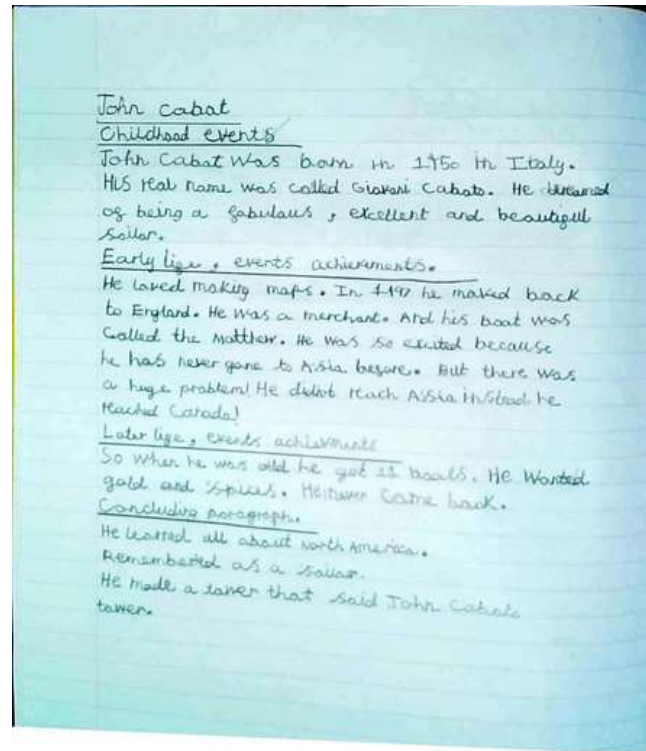 John Cabat
Childhood events
John Cabat was born in 1450 in Italy.
His real name was called Giovani Cabato. He dreamed
of being a fabulaus, excellent and beautiful
sailor.
Early life, events achievements.
He loved making maps. In 1497 he moved back
to England. He was a merchant. And his boat was
called the Matthew. He was so excited because
he has never gone to Asia before. But there was
a huge problem! He didnt reach Assia instead he
reached Canada!
Later life, events achivments
So when he was old he got 11 boats. He Wanted
gold and spices. He never came back.
Concluding paragraph.
He learned all about north America.
Remembered as a sailor.
He made a tower that said John Cabots
tower.